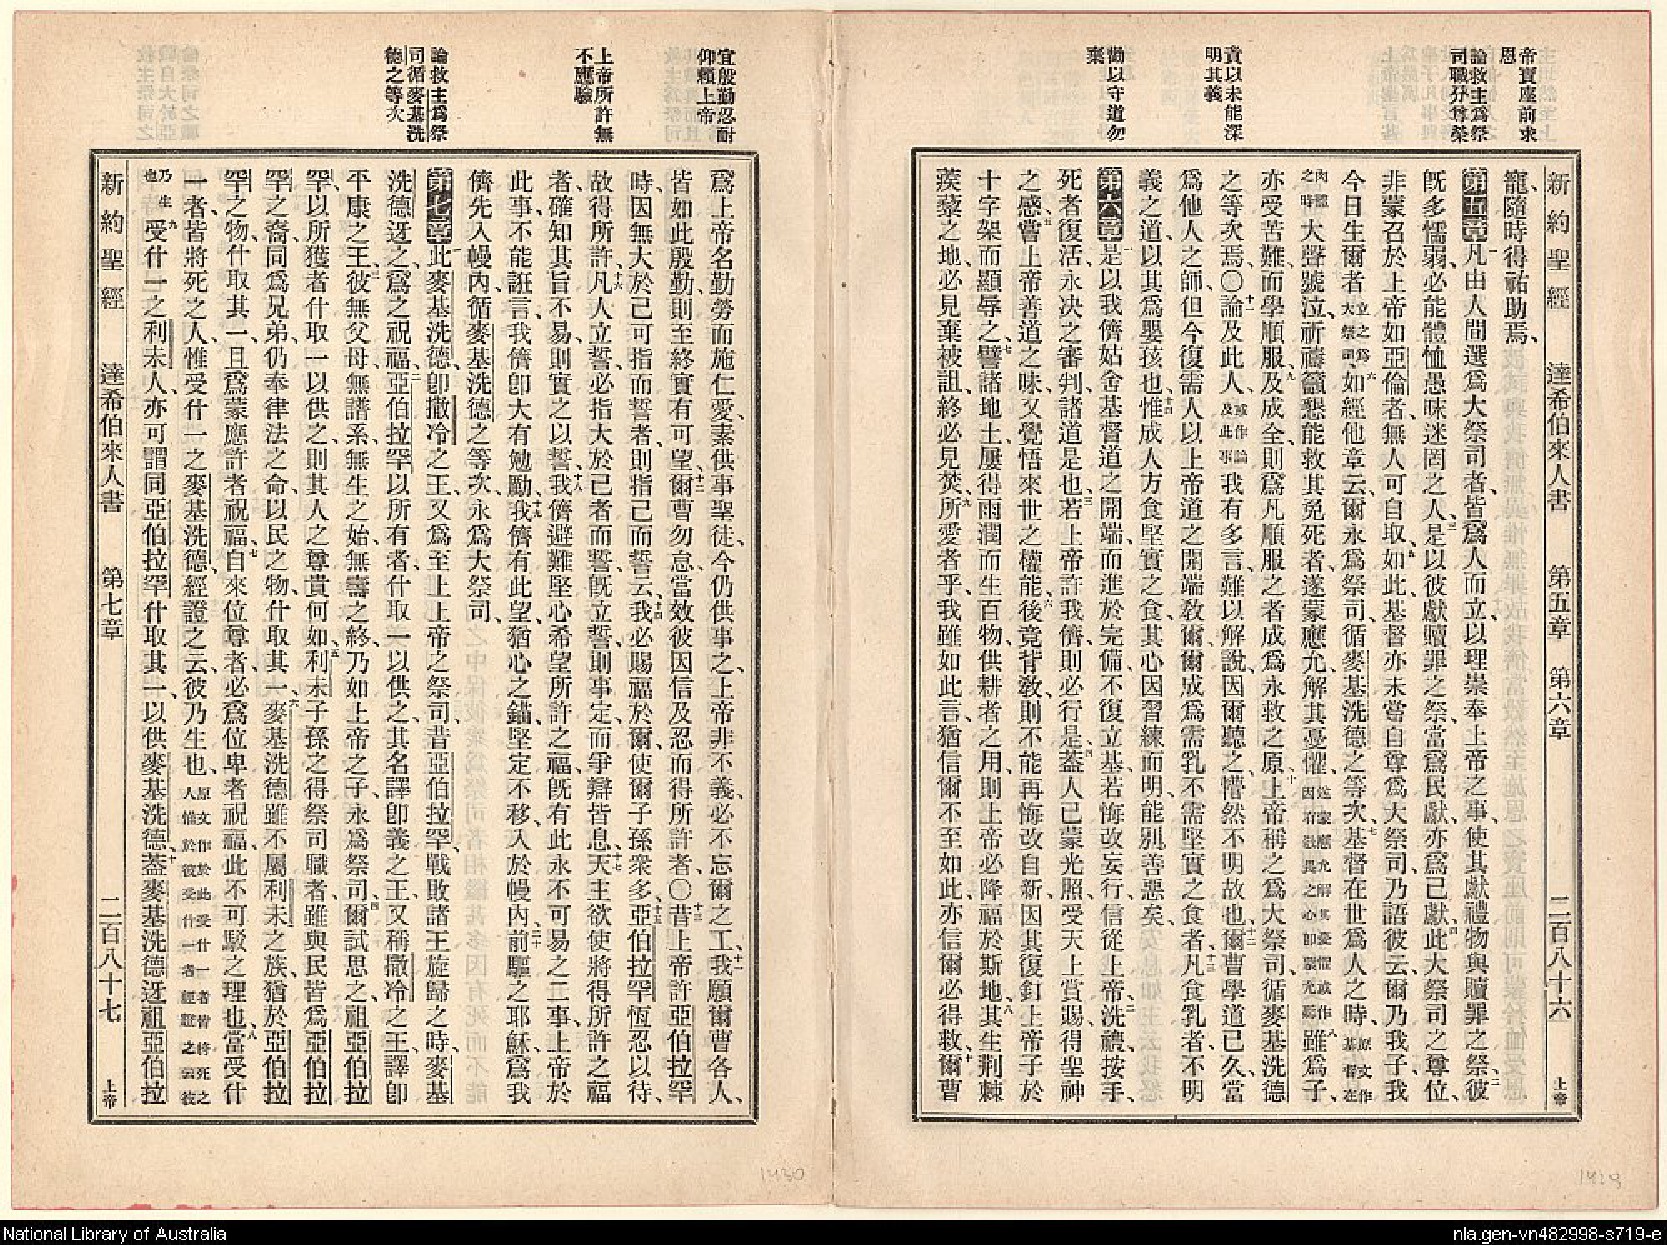 帝寶座前求
恩
論救主爲祭
司職分尊榮
責以未能深
明其義
勸以守道勿
棄
新約聖經 達希伯來人書 第五章 第六章 二百八十六 上帝
寵、隨時得祐助焉、
第五章 一凡由人間選爲大祭司者、皆爲人而立、以理崇奉上帝之事、使其獻禮物與贖罪之祭、二彼
旣多懦弱、必能體恤愚昧迷罔之人、三是以彼獻贖罪之祭、當爲民獻、亦爲己獻、四此大祭司之尊位、
非蒙召於上帝如亞倫者、無人可自取、五如此基督亦未嘗自尊爲大祭司、乃語彼云、爾乃我子、我
今日生爾者、立之爲大祭司、六如經他章云、爾永爲祭司、循麥基洗德之等次、七基督在世爲人之時、原文作基督在
肉體之時大聲號泣、祈禱籲懇能救其免死者、遂蒙應允、解其憂懼、八雖爲子、
亦受苦難而學順服、九及成全、則爲凡順服之者、成爲永救之原、十上帝稱之爲大祭司、循麥基洗德
之等次焉、○十一論及此人、或作論及此事我有多言、難以解說、因爾聽之懵然不明故也、十二爾曹學道已久、當
爲他人之師、但今復需人以上帝道之開端敎爾、爾成爲需乳不需堅實之食者、十三凡食乳者、不明
義之道、以其爲嬰孩也、十四惟成人方食堅實之食、其心因習練而明、能別善惡矣、
第六章 一是以我儕姑舍基督道之開端、而進於完備、不復立基、若悔改妄行、信從上帝、二洗禮、按手、
死者復活、永決之審判、諸道是也、三若上帝許我儕、則必行是、四蓋人已蒙光照、受天上賞賜、得聖神
之感、五嘗上帝善道之味、又覺悟來世之權能、六後竟背敎、則不能再悔改自新、因其復釘上帝子於
十字架、而顯辱之、七譬諸地土、屢得雨潤、而生百物、供耕者之用、則上帝必降福於斯地、八其生荊棘
蒺藜之地、必見棄被詛、終必見焚、九所愛者乎、我雖如此言、猶信爾不至如此、亦信爾必得救、十爾曹
宜殷勤忍耐
仰賴上帝
上帝所許無
不應驗
論救主爲祭
司循麥基洗
德之等次
爲上帝名勤勞而施仁愛、素供事聖徒、今仍供事之、上帝非不義、必不忘爾之工、十一我願爾曹各人、
皆如此殷勤、則至終實有可望、十二爾曹勿怠、當效彼因信及忍而得所許者、○十三昔上帝許亞伯拉罕
時、因無大於己可指而誓者、則指己而誓云、十四我必賜福於爾、使爾子孫衆多、十五亞伯拉罕恆忍以待、
故得所許、十六凡人立誓、必指大於己者而誓、旣立誓、則事定而爭辯皆息、十七天主欲使將得所許之福
者、確知其旨不易、則實之以誓、十八我儕避難堅心希望所許之福、旣有此永不可易之二事、上帝於
此事不能誑言、我儕卽大有勉勵、十九我儕有此望、猶心之錨、堅定不移、入於幔內、二十前驅之耶穌爲我
儕先入幔內、循麥基洗德之等次、永爲大祭司、
第七章 一此麥基洗德、卽撒冷之王、又爲至上上帝之祭司、昔亞伯拉罕戰敗諸王旋歸之時、麥基
洗德迓之、爲之祝福、二亞伯拉罕以所有者、什取一以供之、其名譯卽義之王、又稱撒冷之王、譯卽
平康之王、三彼無父母、無譜系、無生之始、無壽之終、乃如上帝之子、永爲祭司、四爾試思之、祖亞伯拉
罕、以所獲者、什取一以供之、則其人之尊貴何如、五利未子孫之得祭司職者、雖與民皆爲亞伯拉
罕之裔、同爲兄弟、仍奉律法之命、以民之物什取其一、六麥基洗德雖不屬利未之族、猶於亞伯拉
罕之物什取其一、且爲蒙應許者祝福、七自來位尊者必爲位卑者祝福、此不可駁之理也、八當受什
一者、皆將死之人、惟受什一之麥基洗德、經證之云、彼乃生也、原文作於此受什一者皆將死之人惟於彼受什一者經證之云彼
乃生也九受什一之利未人、亦可謂同亞伯拉罕什取其一、以供麥基洗德、十蓋麥基洗德迓祖亞伯拉
新約聖經 達希伯來人書 第七章 二百八十七 上帝
1430
National Library of Australia
nla.gen-vn482998-s719-e